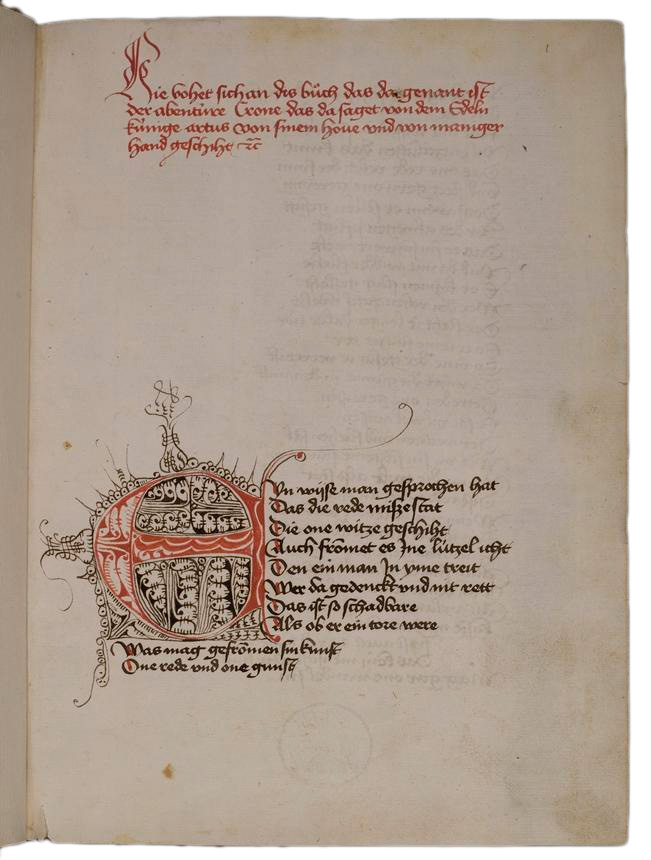 Hie vohet sich an dis bůch das da genant ist
der abentúre Crone das da saget von dem Edeln
kúnige artus von sinem houe vnd von maniger
hand geschiht ⁊c
EYn wyse man gesprochen hat
Das die rede misze stat
Die one witze geschiht
Auch frömet es Jne lútzel icht
Den ein man Jn yme treit
Wer da gedenckt vnd nit rett
Das ist so schadbare
Als ob er ein tore were
Was mag gefrömen sin kunst
One rede vnd one gunst